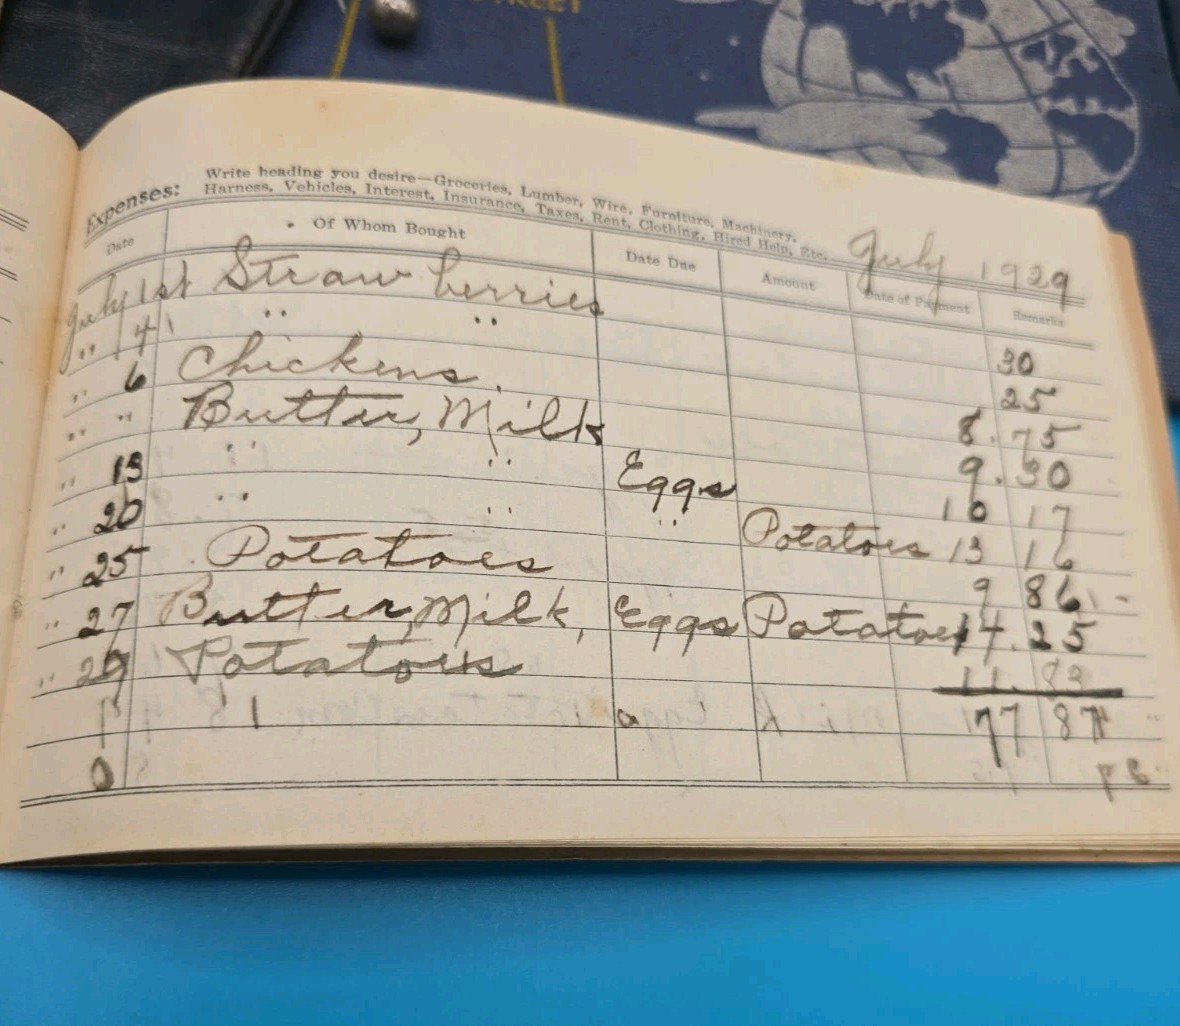 STREET
Expenses: Write heading you desire—Groceries, Lumber, Wire, Furniture, Machinery,
Harness, Vehicles, Interest, Insurance, Taxes, Rent, Clothing, Hired Help, Etc. July 1929
Date Of Whom Bought Date Due Amount Date of Payment Remarks
July 1st Straw berries 30
" 4 " " 25
" 6 Chickens. 8.75
" " Butter, Milk 9.30
" 13 " " Eggs 10 17
" 20 " " " Potatoes 13 16
" 25 Potatoes 9 86
" 27 Butter, Milk, Eggs Potatoes 14.25
" 29 Potatoes 11.83
77 87